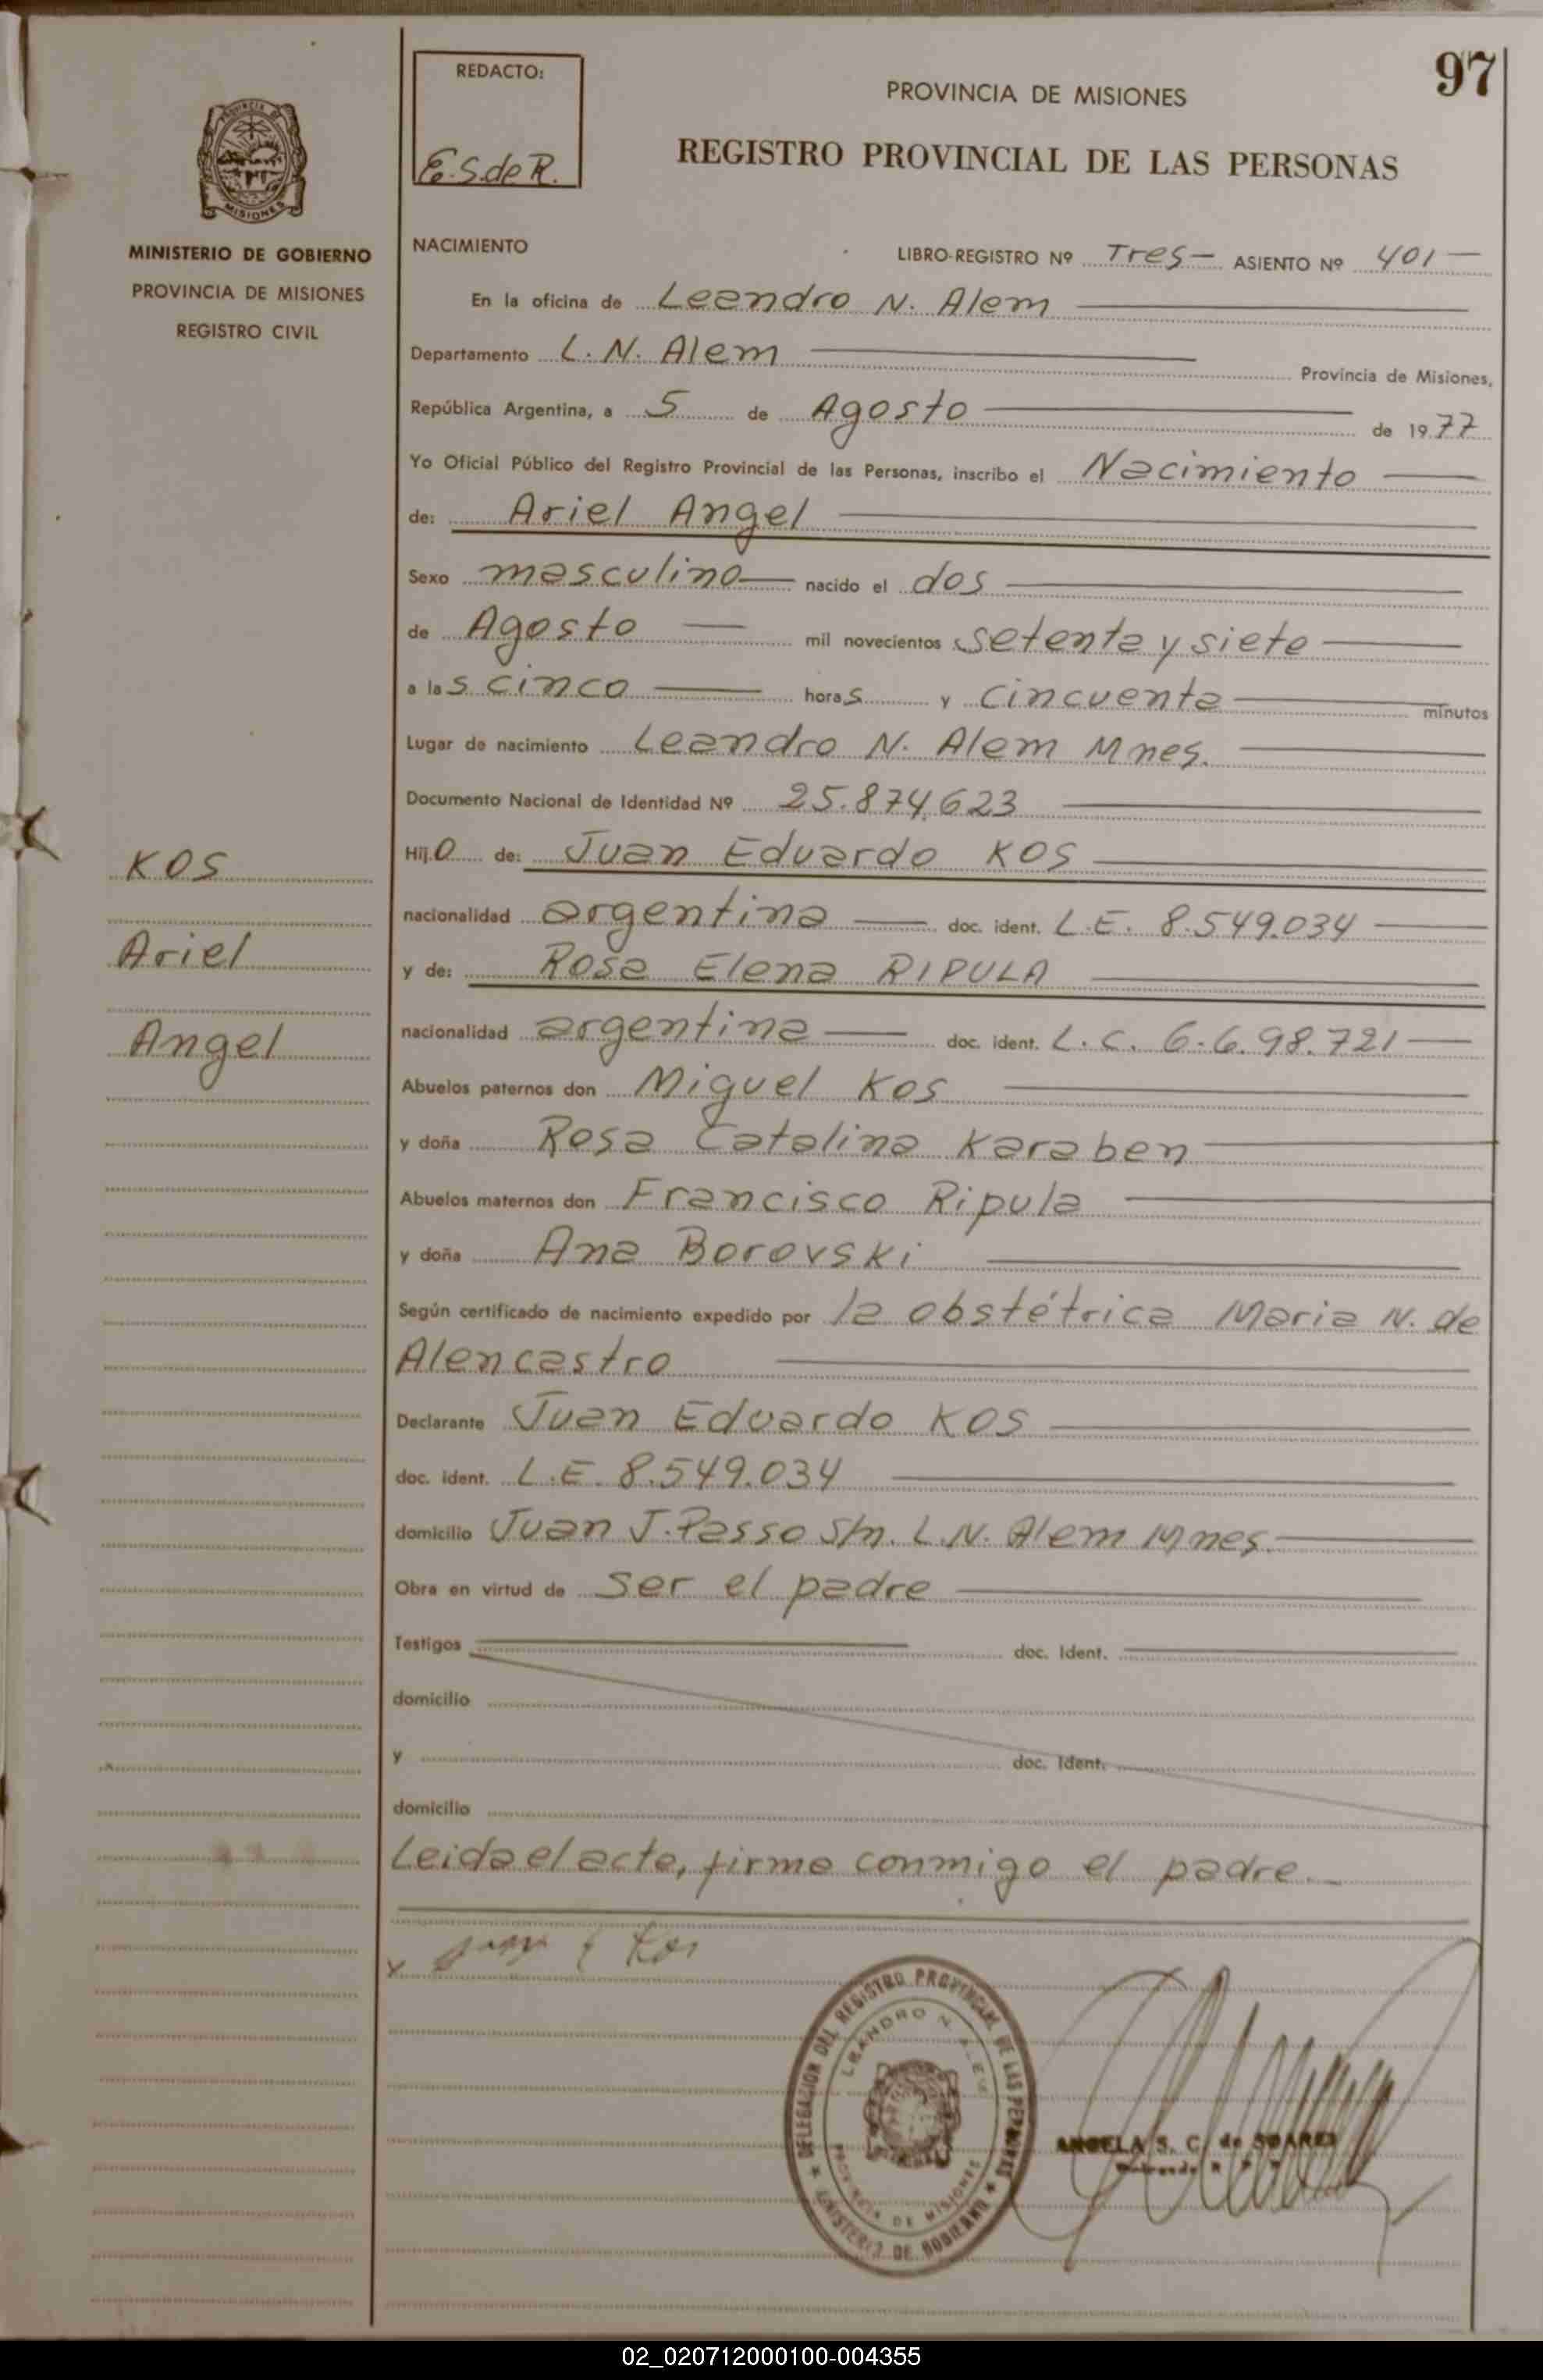 97
REDACTO:
E.S.deR.
PROVINCIA DE MISIONES
REGISTRO PROVINCIAL DE LAS PERSONAS
PROVINCIA DE
MISIONES
MINISTERIO DE GOBIERNO
PROVINCIA DE MISIONES
REGISTRO CIVIL
NACIMIENTO
LIBRO-REGISTRO Nº Tres- ASIENTO Nº 401-
En la oficina de Leandro N. Alem
Departamento L. N. Alem Provincia de Misiones,
República Argentina, a 5 de Agosto de 1977
Yo Oficial Público del Registro Provincial de las Personas, inscribo el Nacimiento
de: Ariel Angel
Sexo masculino nacido el dos
de Agosto mil novecientos setenta y siete
a las cinco horas y cincuenta minutos
Lugar de nacimiento Leandro N. Alem Mnes.
Documento Nacional de Identidad Nº 25.874.623
Hijo de: Juan Eduardo KOS
nacionalidad argentina doc. ident. L.E. 8.549.034
y de: Rosa Elena RIPULA
nacionalidad argentina doc. ident. L.C. 6.6.98.721
Abuelos paternos don Miguel Kos
y doña Rosa Catalina Karaben
Abuelos maternos don Francisco Ripula
y doña Ana Borovski
Según certificado de nacimiento expedido por la obstétrica Maria N. de
Alencastro
Declarante Juan Eduardo KOS
doc. ident. L.E. 8.549.034
domicilio Juan J. Passo s/n. L.N. Alem Mnes.
Obra en virtud de ser el padre
Testigos doc. Ident.
domicilio
y doc. Ident.
domicilio
Leida el acta, firma conmigo el padre.
KOS
Ariel
Angel
x Kos
DELEGACION DEL REGISTRO PROVINCIAL DE LAS PERSONAS
LEANDRO N. ALEM
PROVINCIA DE MISIONES
MINISTERIO DE GOBIERNO
ANGELA S. C. de
02_020712000100-004355